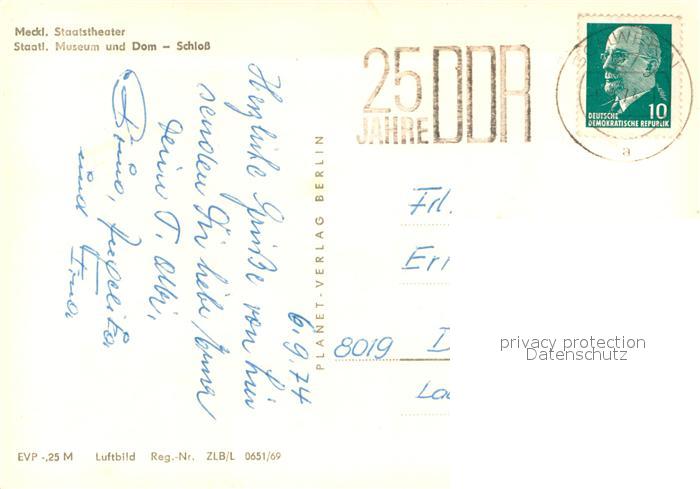 Meckl. Staatstheater
Staatl. Museum und Dom – Schloß
25
JAHRE DDR
SCHWERIN
a
10
DEUTSCHE
DEMOKRATISCHE REPUBLIK
6.9.74
Herzliche Grüße von hier
senden Dir liebe Erna
Dein T. Olbi,
Dina, Angelika
und Timo
PLANET-VERLAG BERLIN
Frl.
Eri
8019 D
La
privacy protection
Datenschutz
EVP -,25 M Luftbild Reg.-Nr. ZLB/L 0651/69